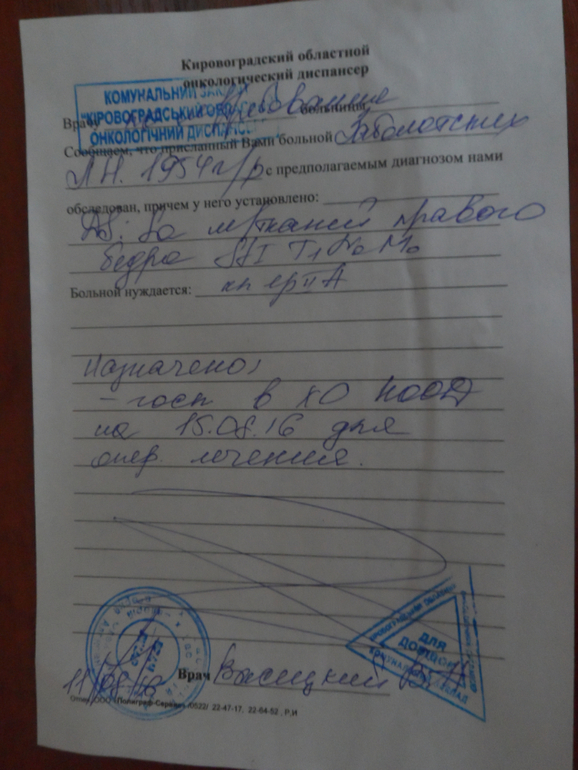 Кировоградский областной
онкологический диспансер
КОМУНАЛЬНИЙ ЗАКЛАД
"КІРОВОГРАДСЬКИЙ ОБЛАСНИЙ
ОНКОЛОГІЧНИЙ ДИСПАНСЕР"
Врачу по требованию больницы
Сообщаем, что присланный Вами больной Заболотских
Л.Н. 1954 г/р с предполагаемым диагнозом нами
обследован, причем у него установлено:
DS: Sa м/тканей правого
бедра St I T1N0M0
Больной нуждается: кл гр II А
Назначено:
- госп в ХО КООД
на 15.08.16 для
опер. лечения.
ДЛЯ
ДОВІДОК
11/08/16 Врач
22-47-17, 22-64-52, Р.И